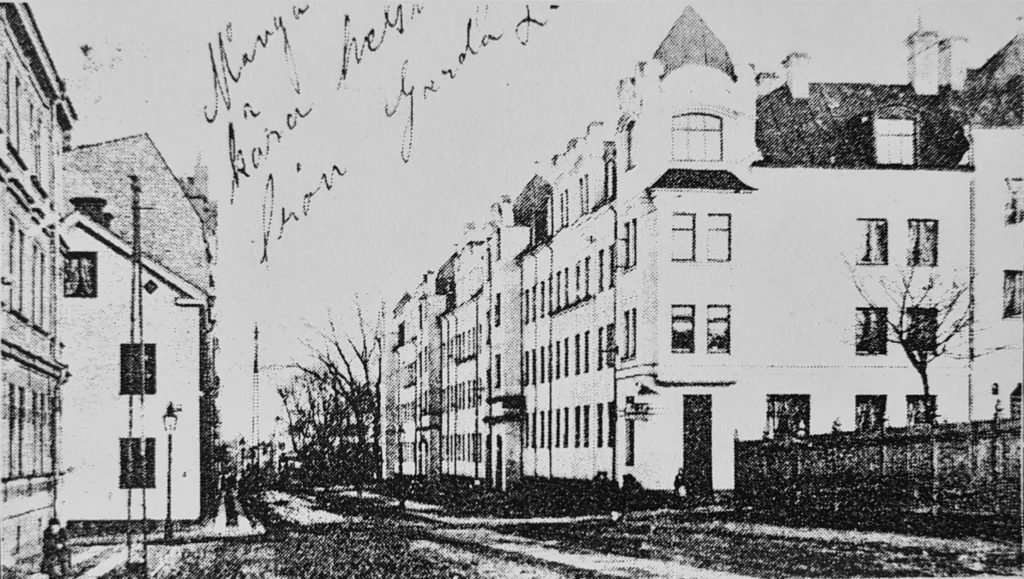 Många
kära hels
från Gerda L-